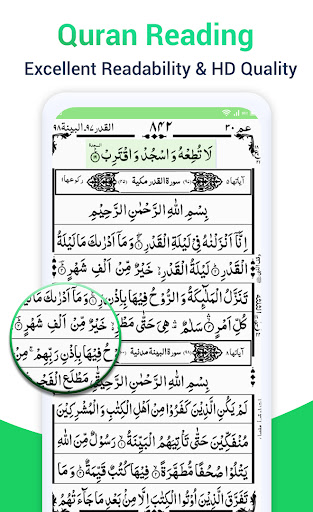 Quran Reading
Excellent Readability & HD Quality
عم ٣٠
٨٤٢
القدر ٩٧، البينة ٩٨
لَا تُطِعْهُ وَاسْجُدْ وَاقْتَرِبْ
سورة القدر مكية
بِسْمِ اللّٰهِ الرَّحْمٰنِ الرَّحِيْمِ
اِنَّاۤ اَنْزَلْنٰهُ فِيْ لَيْلَةِ الْقَدْرِ وَمَاۤ اَدْرٰىكَ مَا لَيْلَةُ
الْقَدْرِ لَيْلَةُ الْقَدْرِ خَيْرٌ مِّنْ اَلْفِ شَهْرٍ
تَنَزَّلُ الْمَلٰٓئِكَةُ وَالرُّوْحُ فِيْهَا بِاِذْنِ رَبِّهِمْ
وَمَاۤ اَدْرٰىكَ مَا لَيْلَةُ
كُلِّ اَمْرٍ سَلٰمٌ هِيَ حَتّٰى مَطْلَعِ
خَيْرٌ مِّنْ اَلْفِ شَهْرٍ
حُ فِيْهَا بِاِذْنِ رَبِّهِمْ
سورة البينة مدنية
مَطْلَعِ الْفَجْرِ
بِسْمِ اللّٰهِ الرَّحْمٰنِ الرَّحِيْمِ
لَمْ يَكُنِ الَّذِيْنَ كَفَرُوْا مِنْ اَهْلِ الْكِتٰبِ وَالْمُشْرِكِيْنَ
مُنْفَكِّيْنَ حَتّٰى تَاْتِيَهُمُ الْبَيِّنَةُ رَسُوْلٌ مِّنَ اللّٰهِ
يَتْلُوْا صُحُفًا مُّطَهَّرَةً فِيْهَا كُتُبٌ قَيِّمَةٌ وَمَا
تَفَرَّقَ الَّذِيْنَ اُوْتُوا الْكِتٰبَ اِلَّا مِنْۢ بَعْدِ مَا جَآءَتْهُمُ